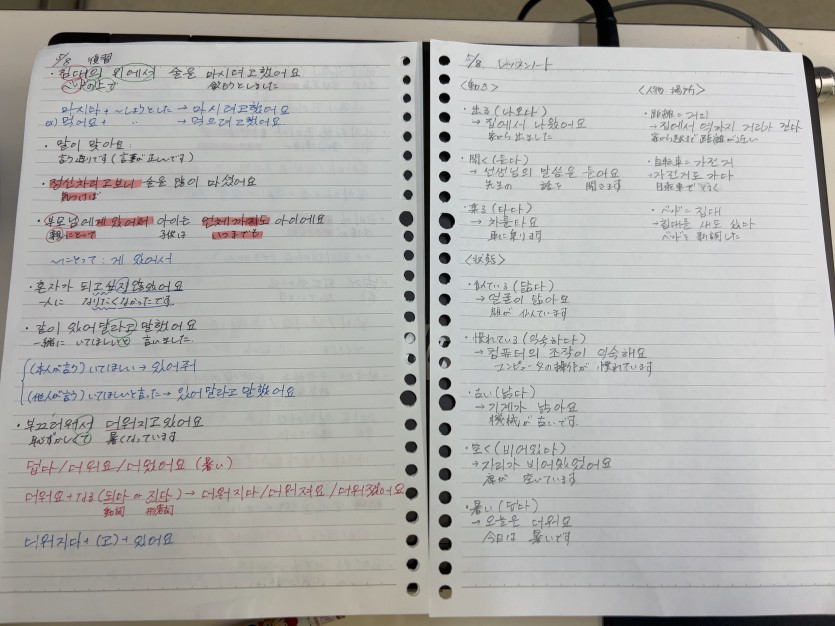 5/8 復習
・침대의 위에서 술을 마시려고했어요
ベッドの上で 飲もうとしました
마시다 + ~しようとした → 마시려고했어요
ex) 먹어요 + 〃 → 먹으려고했어요
・말이 맞아요
言う通りです (言葉が正しいです)
・정신차리고보니 술을 많이 마셨어요
気づけば
・부모님에게 있어서 아이는 언제까지도 아이에요
親にとって 子供は いつまでも
~にとって : 게 있어서
・혼자가 되고싶지않았어요
一人に なりたくなかったです。
・같이 있어달라고 말했어요
一緒に いてほしいと 言いました
(本人が言う) いてほしい → 있어줘
(他人が言う) いてほしいと言った → 있어달라고 말했어요
・부끄러워서 더워지고있어요
恥ずかしくて 暑くなっています
덥다/더워요/더웠어요 (暑い)
더워요 + なる (되다 or 지다) → 더워지다/더워져요/더워졌어요
動詞 形容詞
더워지다 + (고) + 있어요
5/8 レッスンノート
<動き>
・出る (나오다)
→ 집에서 나왔어요
家から出ました
・聞く (듣다)
→ 선생님의 말씀을 들어요
先生の 話を 聞きます
・乗る (타다)
→ 차를타요
車に乗ります
<状態>
・似ている (닮다)
→ 얼굴이 닮아요
顔が 似ています
・慣れている (익숙하다)
→ 컴퓨터의 조작이 익숙해요
コンピュータの操作が 慣れています
・古い (낡다)
→ 기계가 낡아요
機械が 古いです。
・空く (비어있다)
→ 자리가 비어있어요
席が 空いています
・暑い (덥다)
→ 오늘은 더워요
今日は 暑いです
<人物 場所>
・距離 = 거리
→ 집에서 역까지 거리가
家から駅まで 距離が近い
・自転車 =
자전거로 가다
自転車で行く
・ベッド = 침대
→ 침대를 새로 샀다
ベッドを 新調した